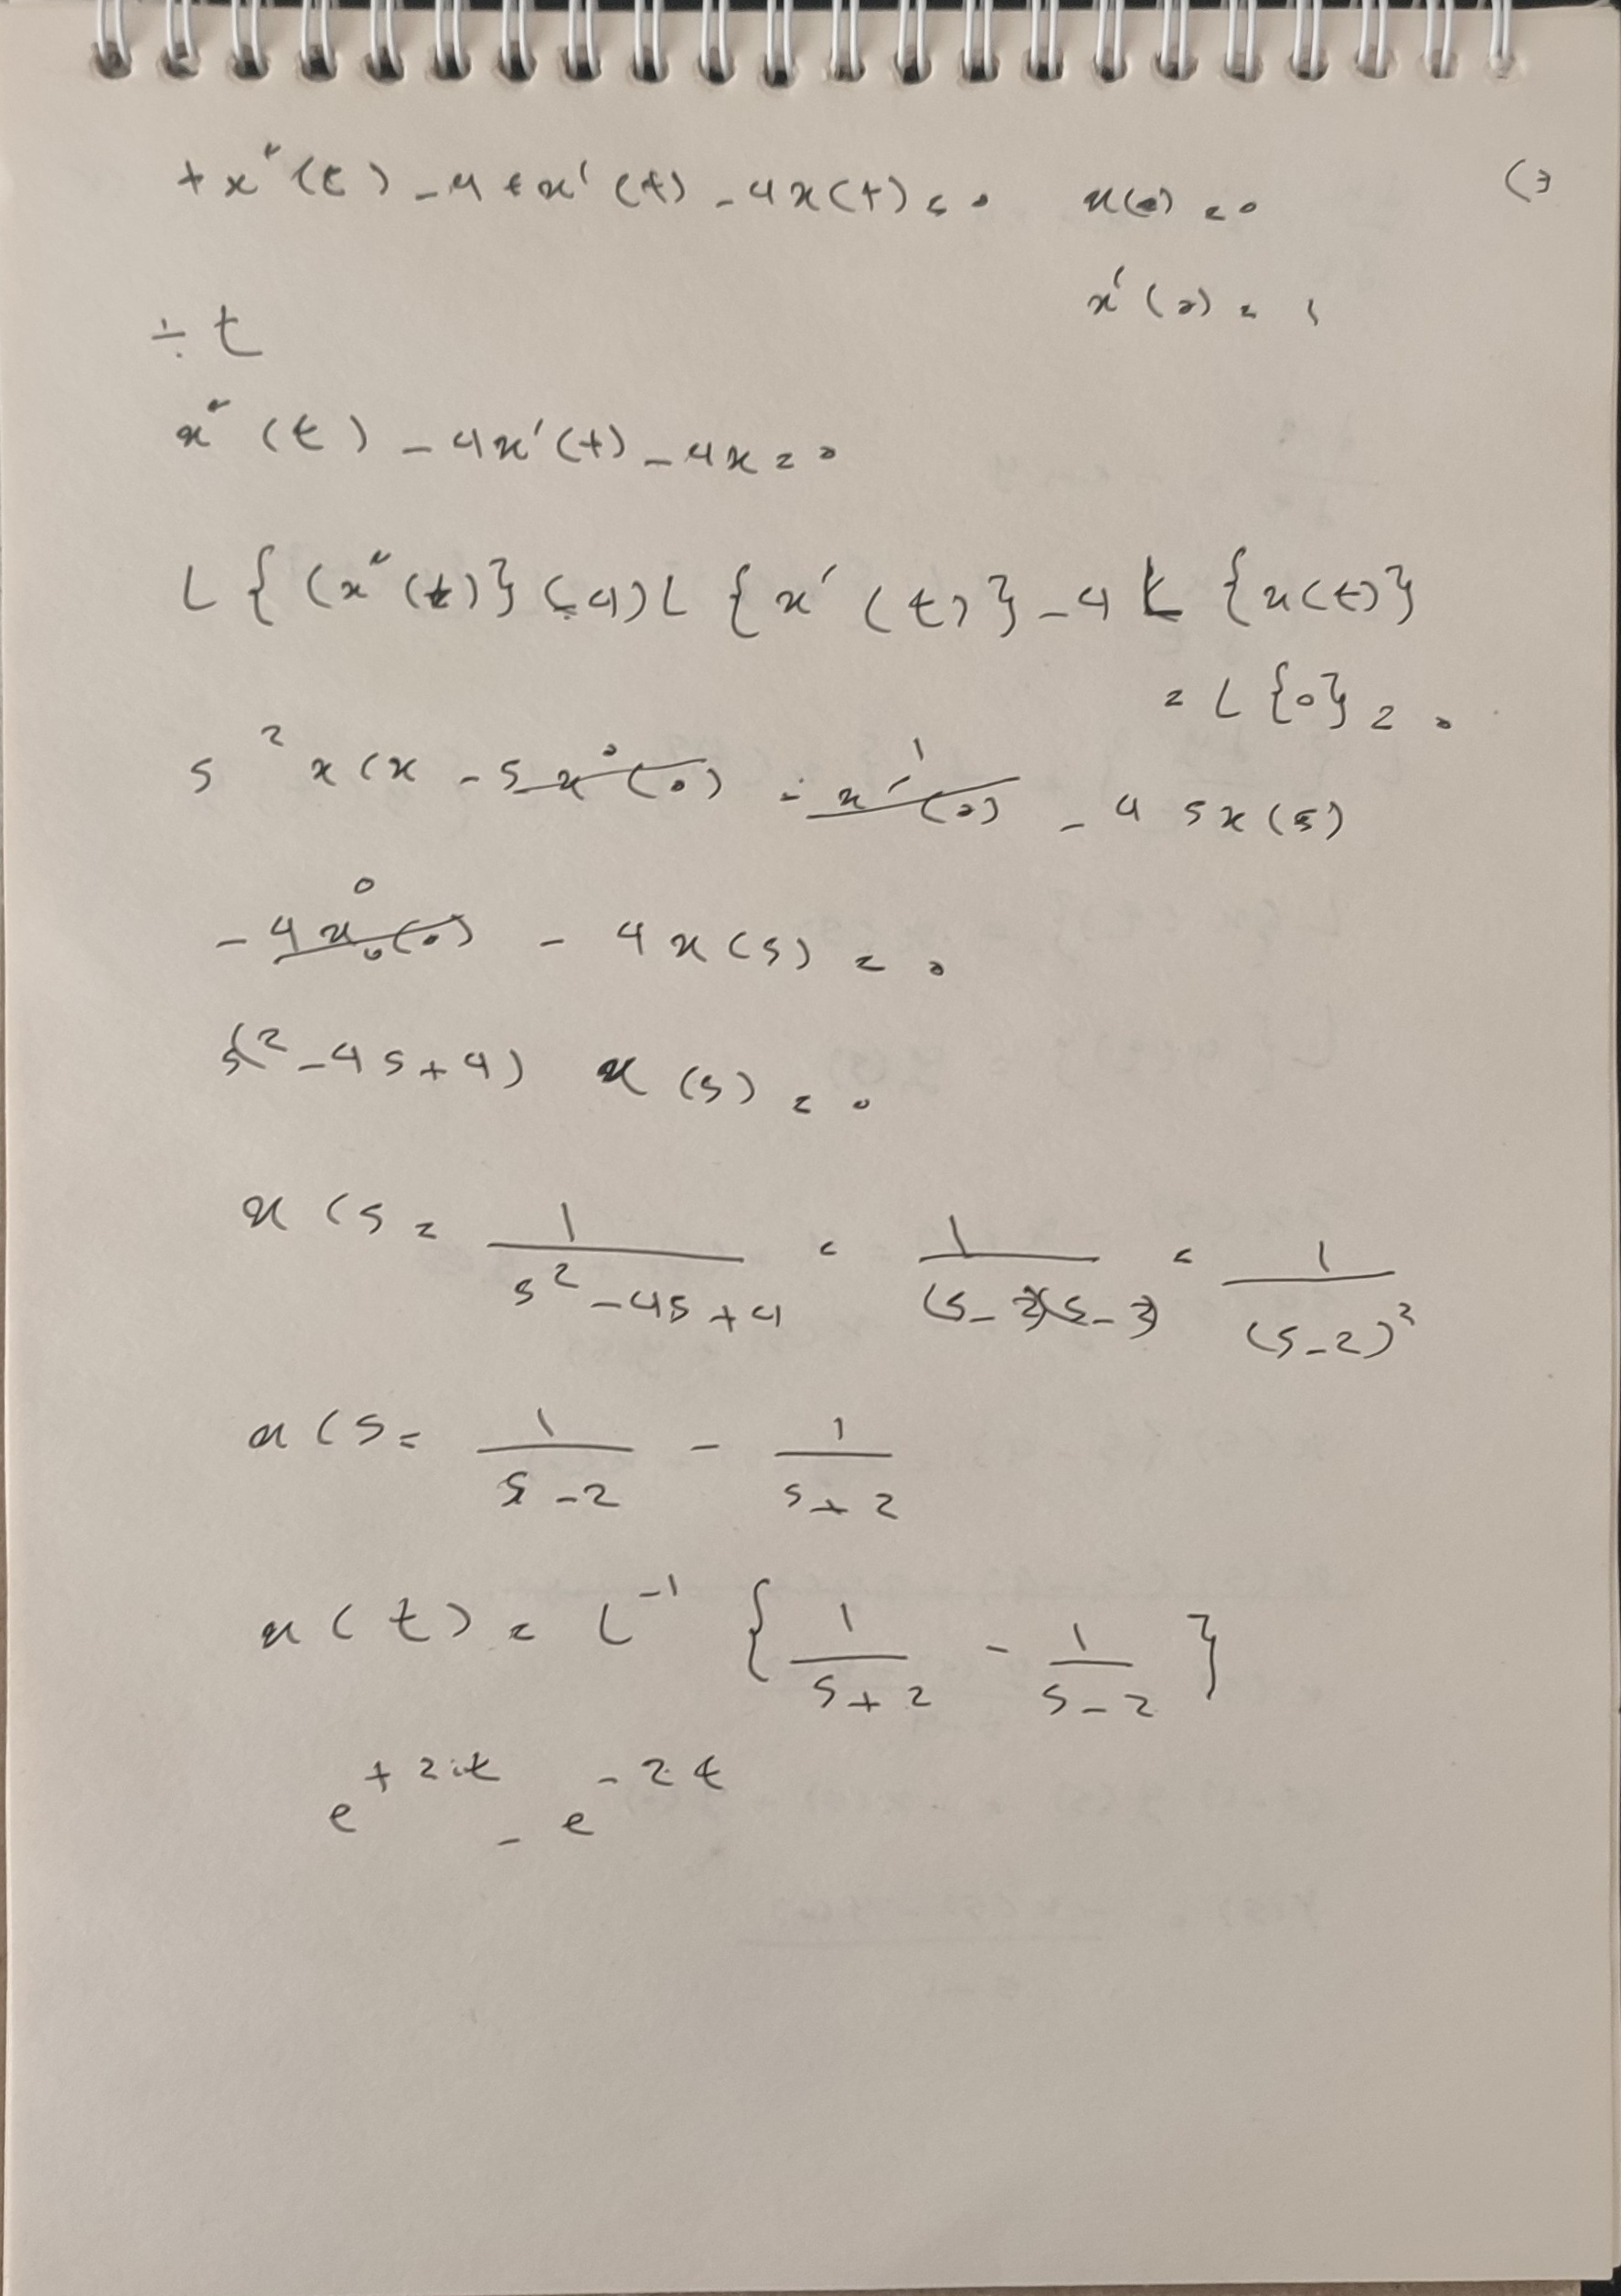 t x''(t) - 4 t x'(t) - 4x(t) = 0    x(0) = 0    (3
x'(0) = 1
÷ t
x''(t) - 4x'(t) - 4x = 0
L { (x''(t)} (-4) L { x'(t)} - 4 L {x(t)}
= L {0} = 0
s² x(x - s x(0) 0 - x'(0) 1 - 4 s x(s)
- 4x(0) 0 - 4 x(s) = 0
s(² - 4s + 4) x(s) = 0
x(s = 1/(s² - 4s + 4) = 1/((s-2)(s-2) = 1/(s-2)²
x(s = 1/(s-2) - 1/(s+2)
x(t) = L⁻¹ { 1/(s+2) - 1/(s-2) }
e^{+2t} - e^{-2t}